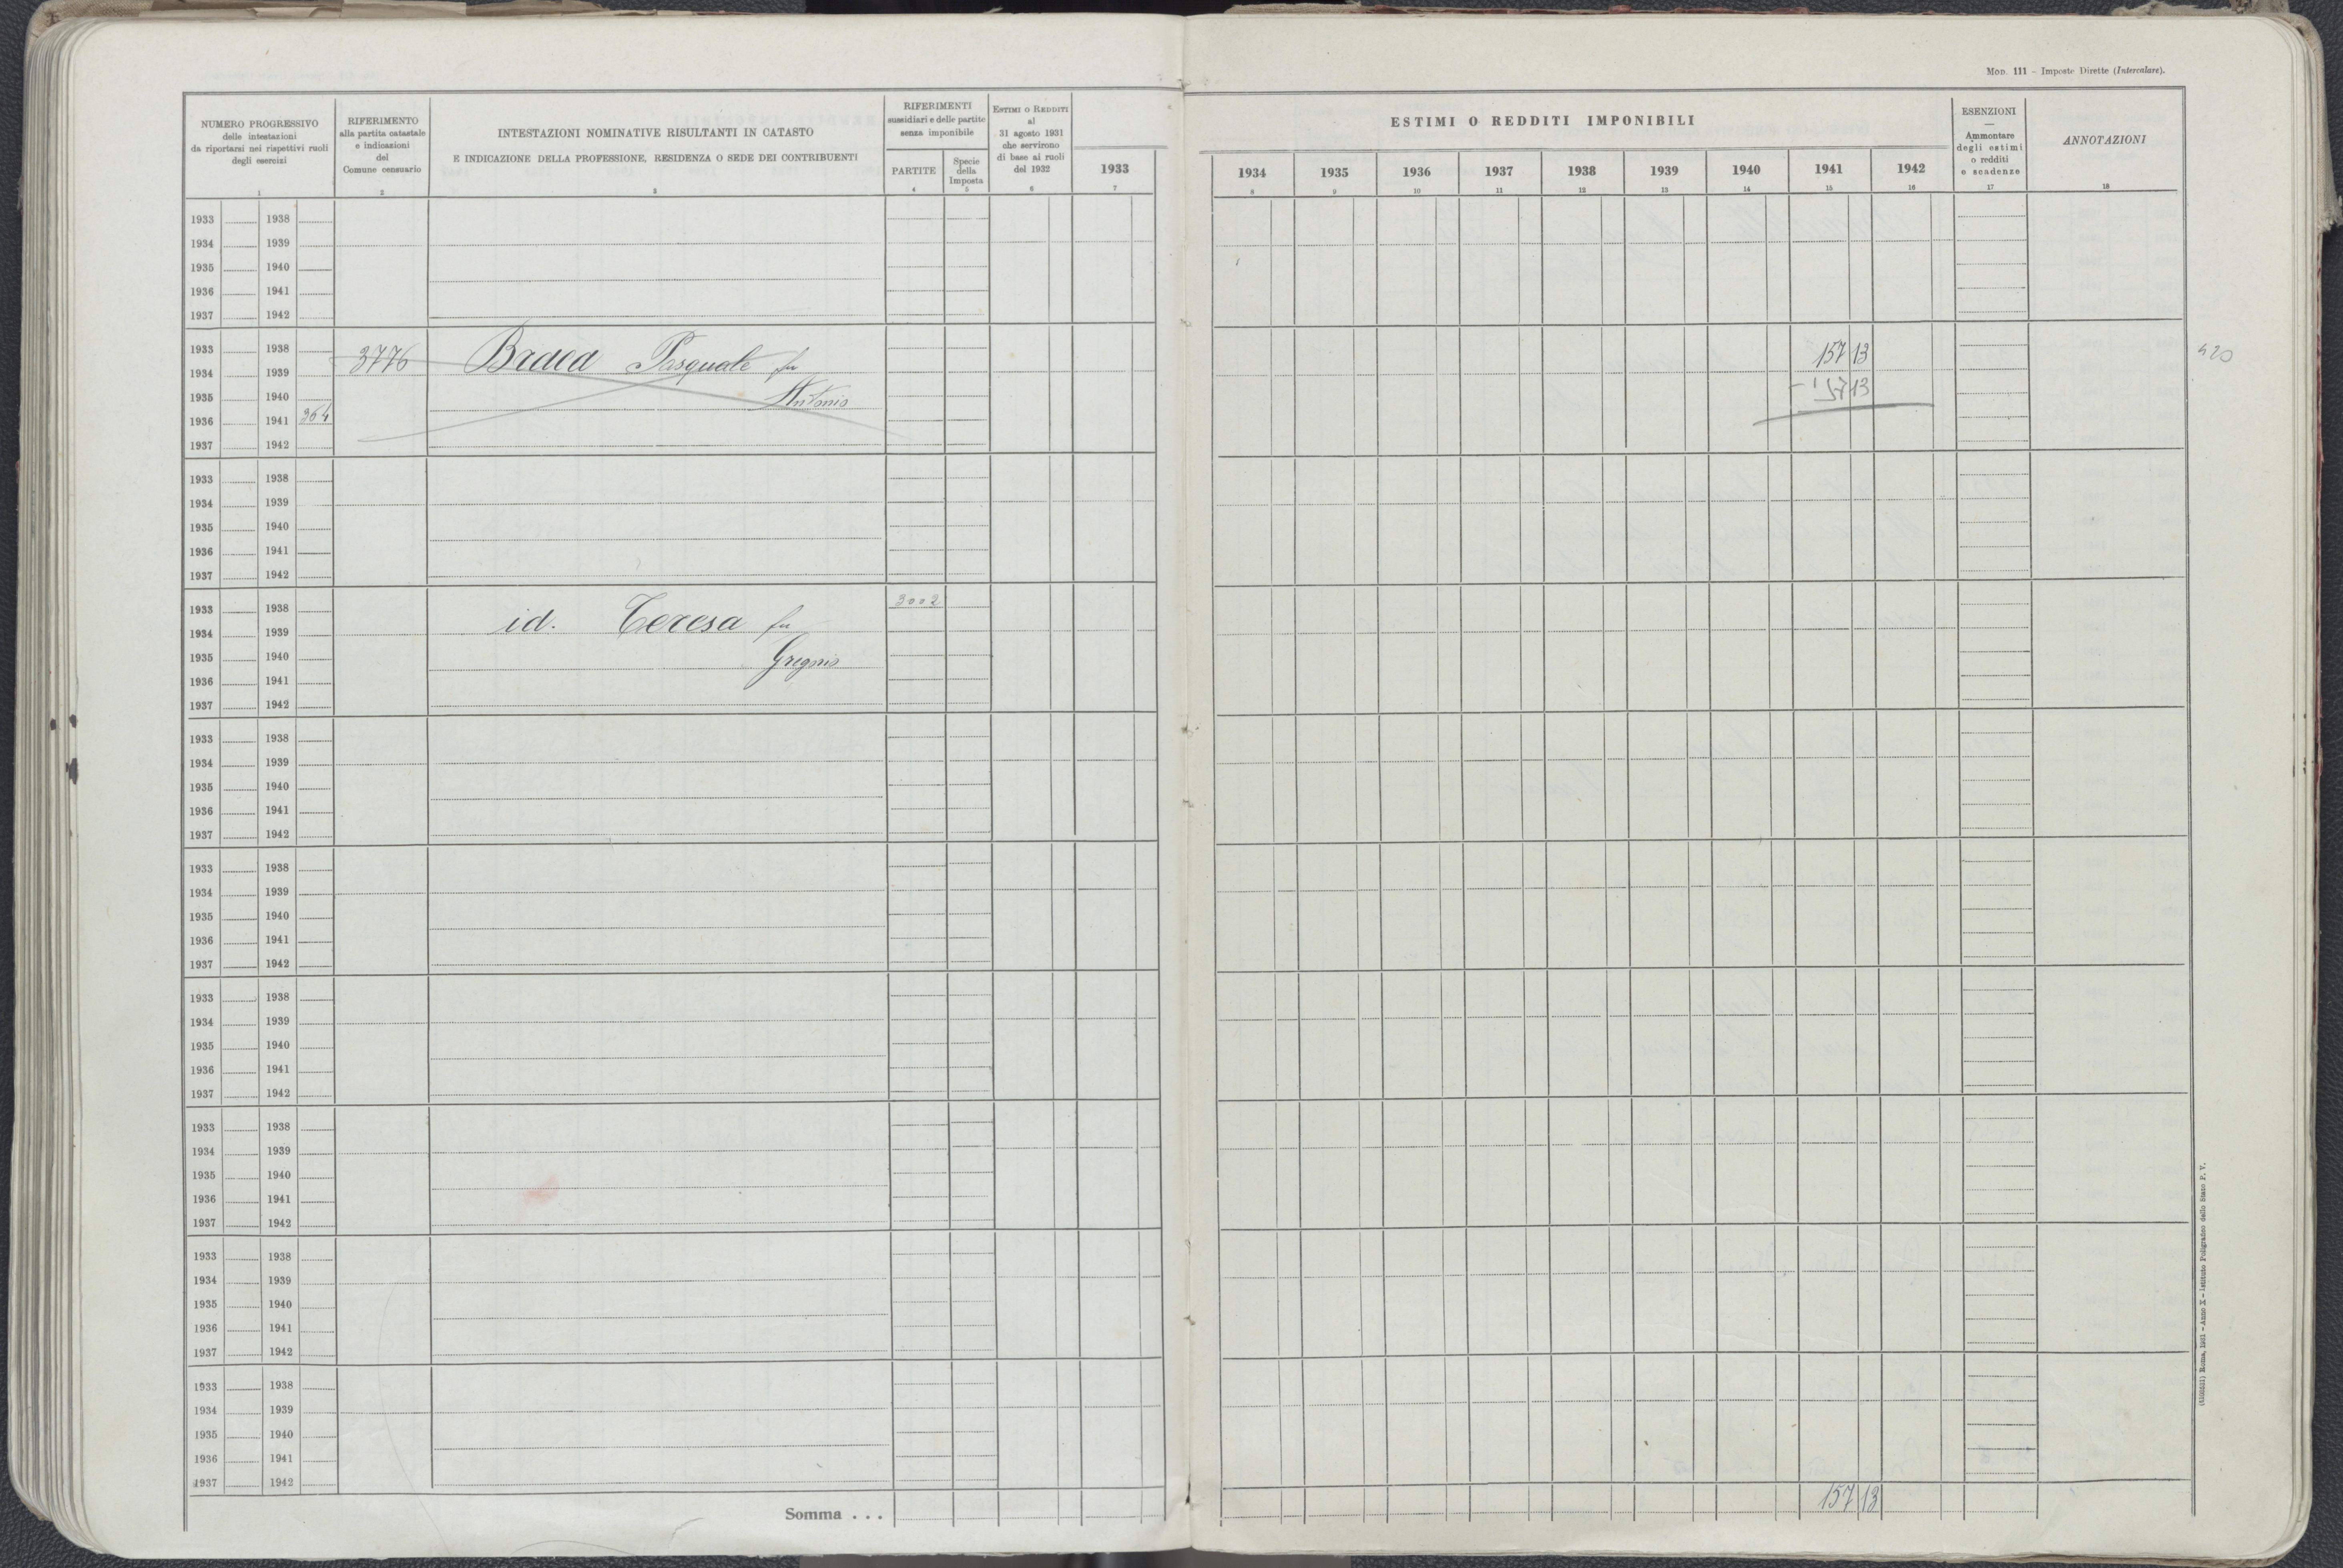 MOD. 111 - Imposte Dirette (Intercalare).
NUMERO PROGRESSIVO
delle intestazioni
da riportarsi nei rispettivi ruoli
degli esercizi
1
RIFERIMENTO
alla partita catastale
e indicazioni
del
Comune censuario
2
INTESTAZIONI NOMINATIVE RISULTANTI IN CATASTO
E INDICAZIONE DELLA PROFESSIONE, RESIDENZA O SEDE DEI CONTRIBUENTI
3
RIFERIMENTI
sussidiari e delle partite
senza imponibile
PARTITE
4
Specie
della
Imposta
5
ESTIMI O REDDITI
al
31 agosto 1931
che servirono
di base ai ruoli
del 1932
6
1933
7
ESTIMI O REDDITI IMPONIBILI
1934 1935 1936 1937 1938 1939 1940 1941 1942
8 9 10 11 12 13 14 15 16
ESENZIONI
—
Ammontare
degli estimi
o redditi
e scadenze
17
ANNOTAZIONI
18
1933 1938
1934 1939
1935 1940
1936 1941
1937 1942
1933 1938
3776 Bracca Pasquale fu 157 13 420
1934 1939
1935 1940 Antonio - 157 13
1936 1941 364
1937 1942
1933 1938
1934 1939
1935 1940
1936 1941
1937 1942
1933 1938 3002
1934 1939 id. Teresa fu
1935 1940 Gregorio
1936 1941
1937 1942
1933 1938
1934 1939
1935 1940
1936 1941
1937 1942
1933 1938
1934 1939
1935 1940
1936 1941
1937 1942
1933 1938
1934 1939
1935 1940
1936 1941
1937 1942
1933 1938
1934 1939
1935 1940
1936 1941
1937 1942
1933 1938
1934 1939
1935 1940
1936 1941
1937 1942
1933 1938
1934 1939
1935 1940
1936 1941
1937 1942
Somma . . . 157 13
Roma, 1931 - Anno X - Istituto Poligrafico dello Stato P. V.